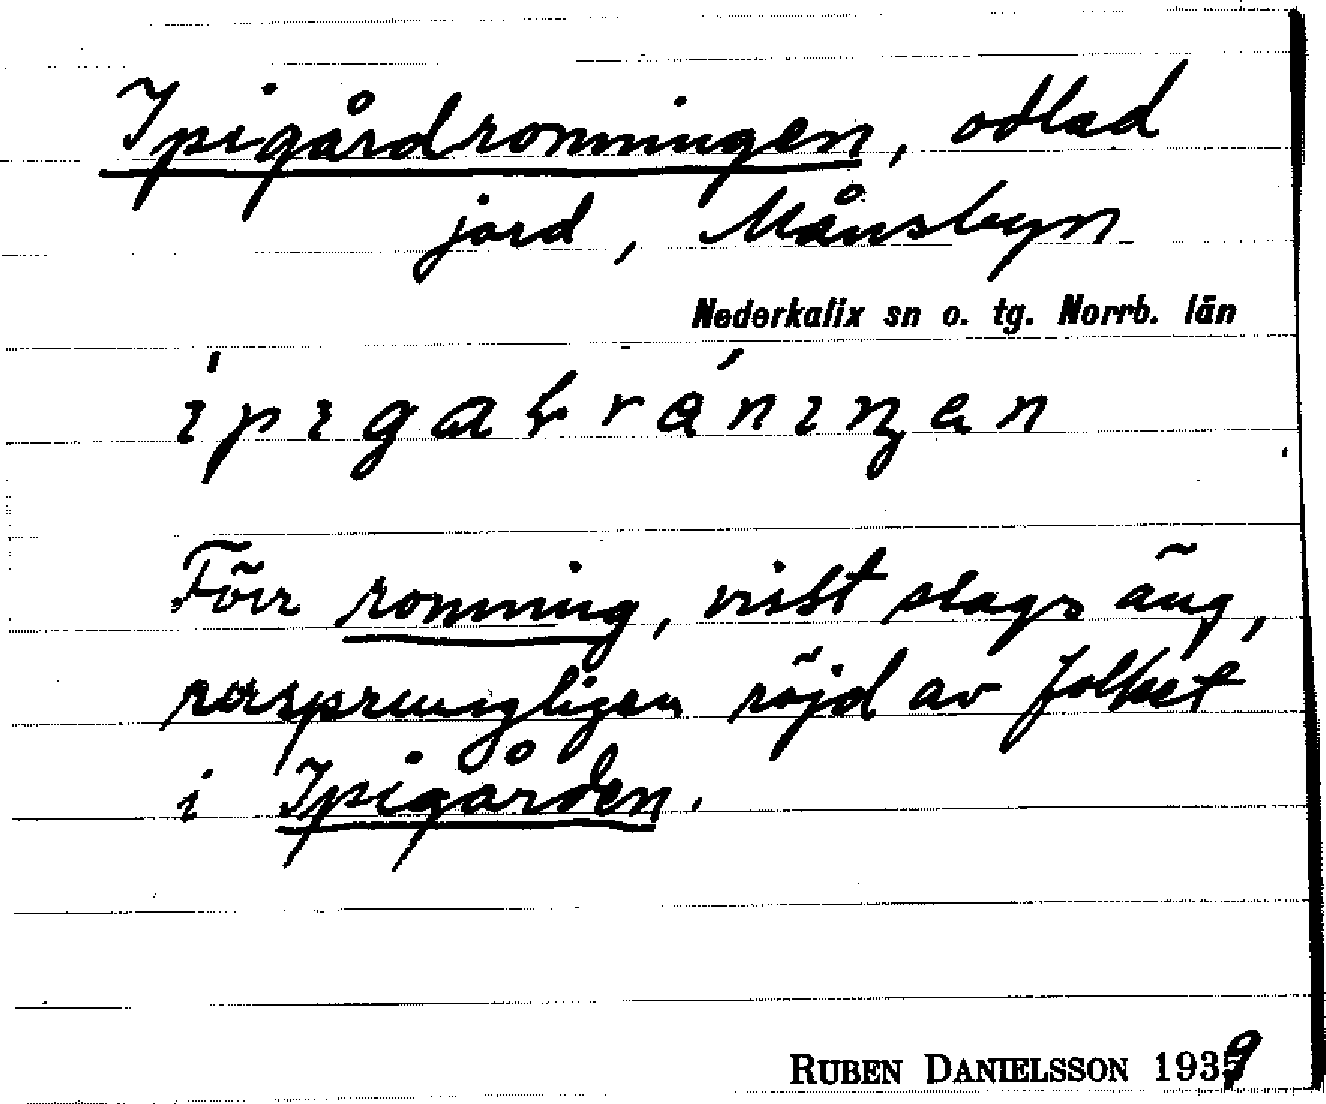 Ipigårdronningen, odlad
jord, Månsbyn
Nederkalix sn o. tg. Norrb. län
Förr ronning, visst slags äng,
ursprungligen röjd av folket
i Ipigården.
RUBEN DANIELSSON 1939